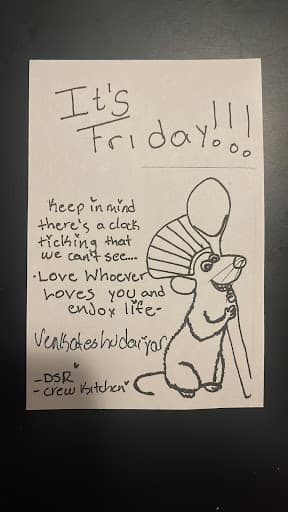 It's
Friday!!!
Keep in mind
there's a clock
ticking that
we can't see...
-Love Whoever
Loves you and
enjox life-
Venkateshudariyar
-DSR
-crew kitchen